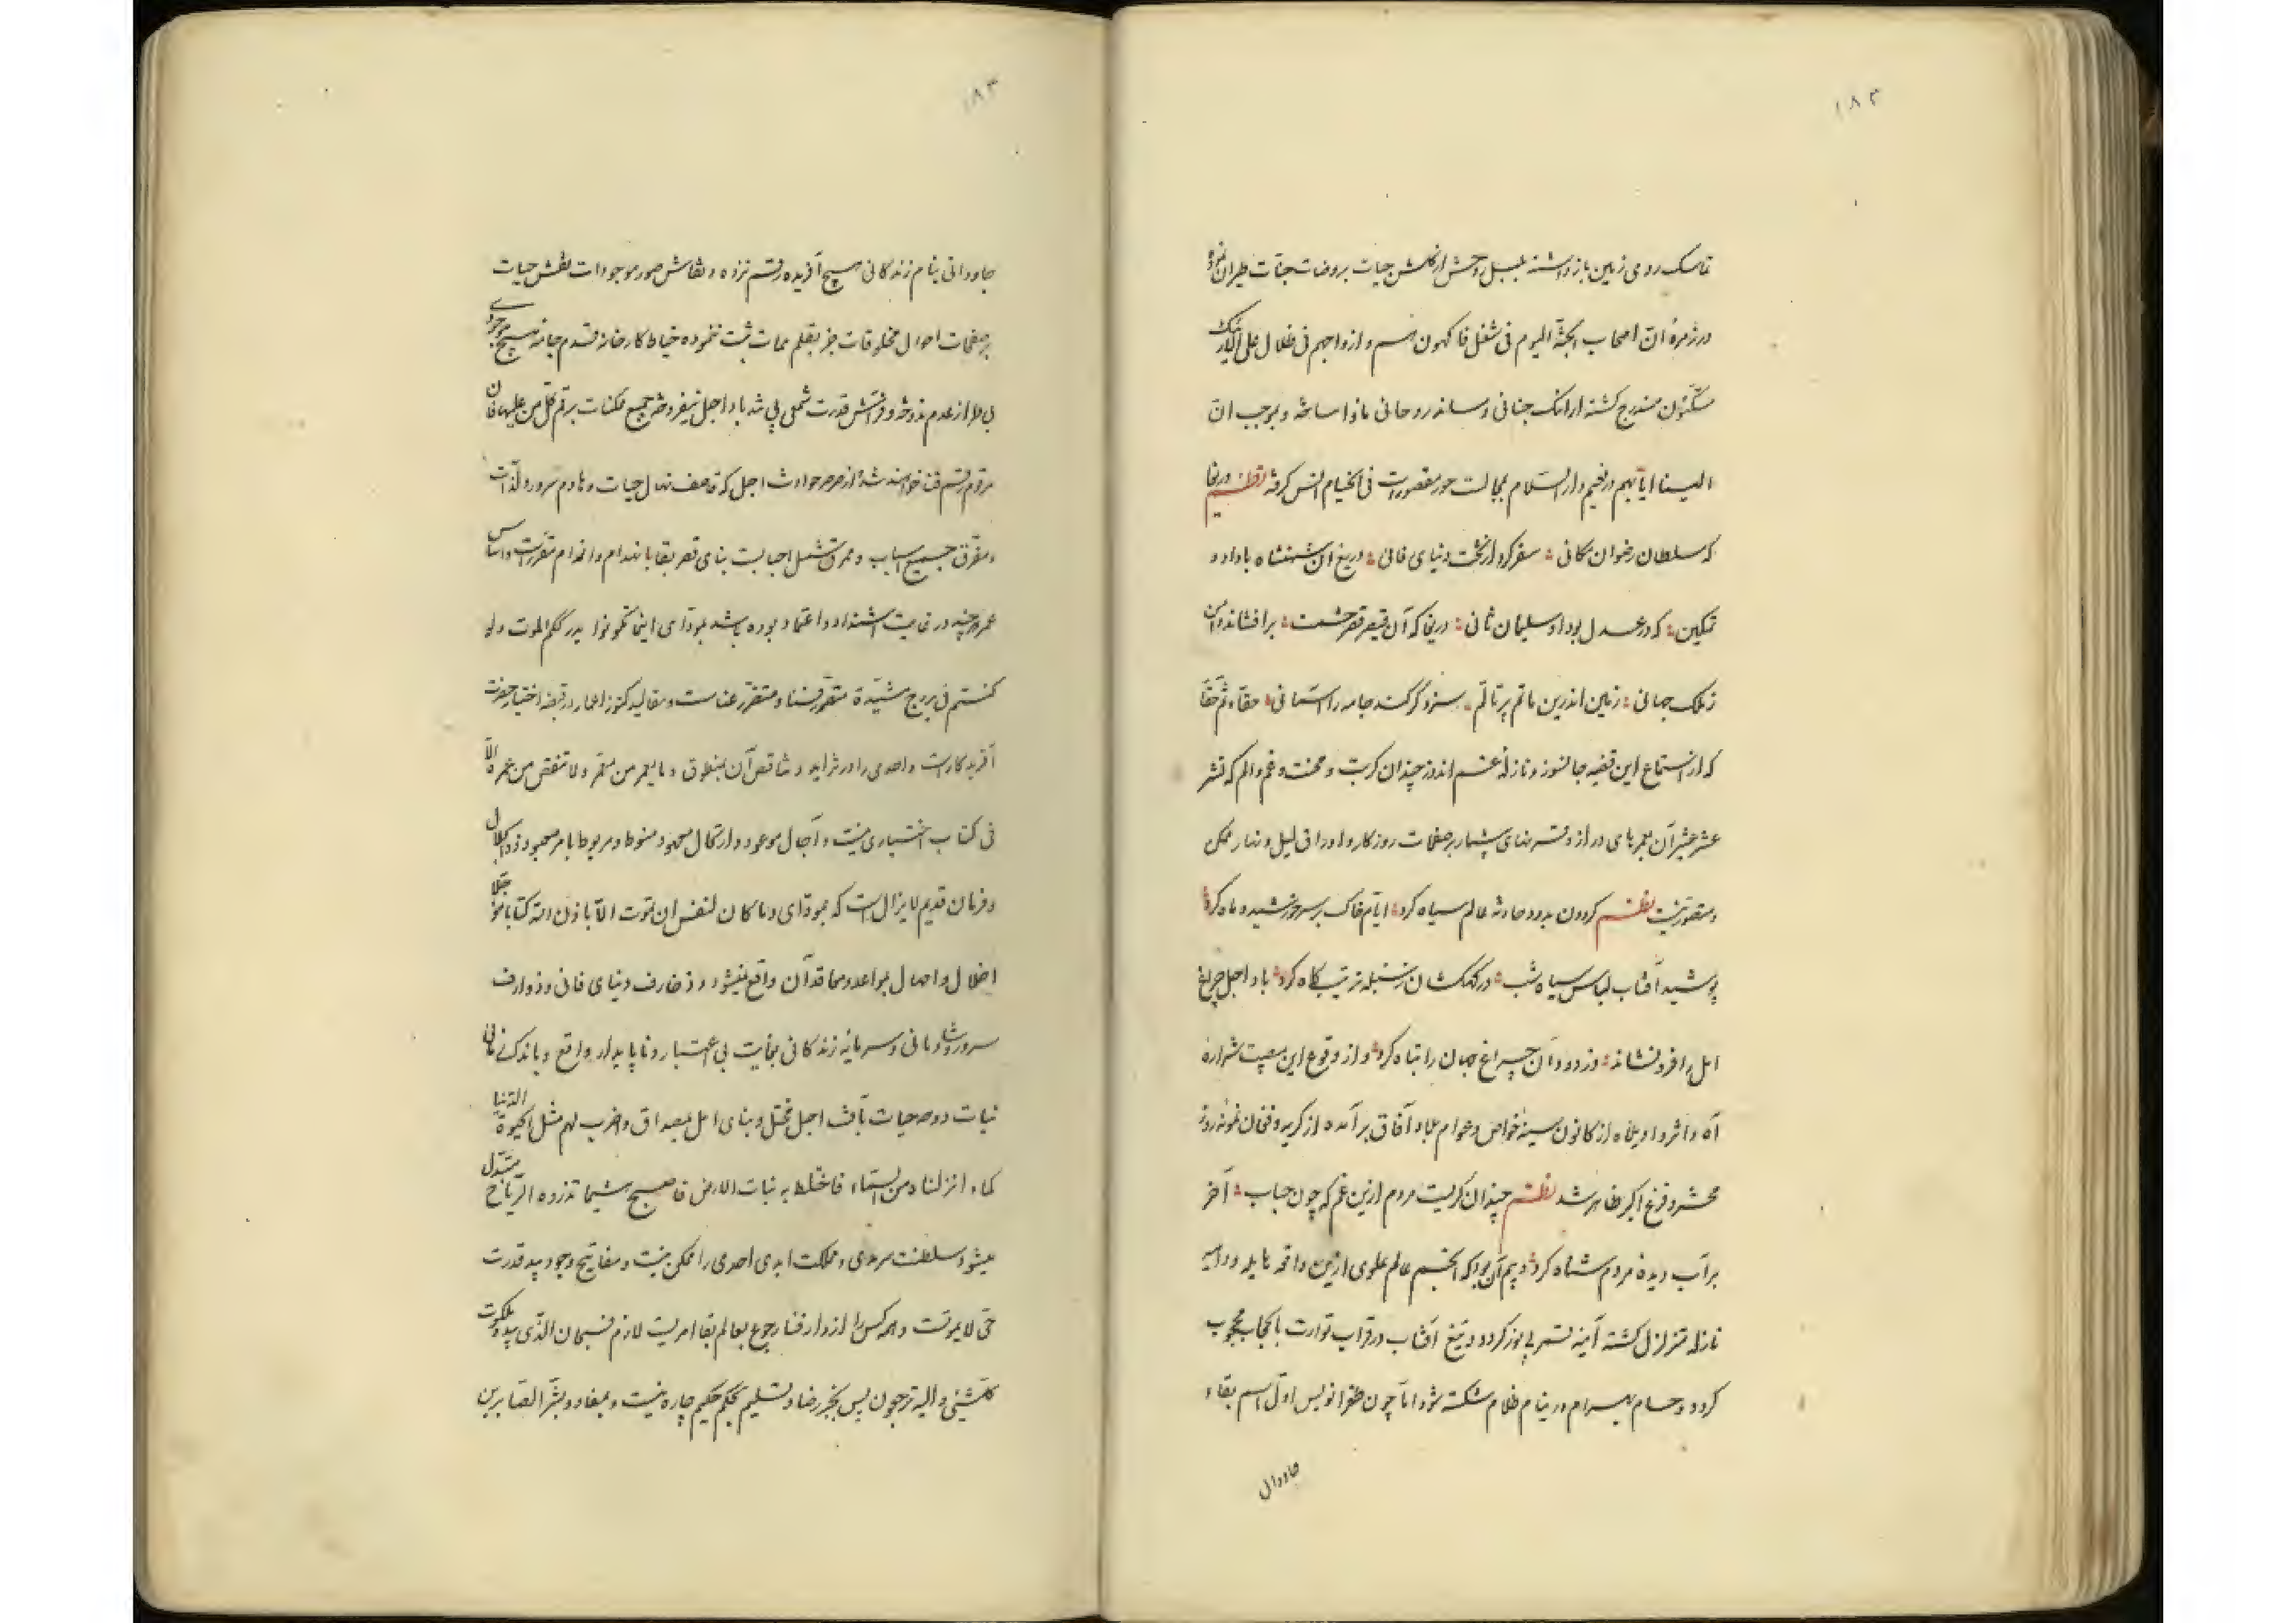 ۱۸۲
تماسک روی زمین باز داشته بلبل روحش از گلشن حیات بروضات جنات طیران نموده
در زمرهٔ ان اصحاب الجنة الیوم فی شغل فاکهون هم و ازواجهم فی ظلال علی الارائک
متکئون مندرج گشته ارائک جنانی و ساند روحانی ماوا ساخته و بموجب ان
الینا ایابهم در نعیم دار السلام بمجالست حور مقصورات فی الخیام انس گرفته نظم دریغا
که سلطان رضوان مکانی سفر کرد از تخت دنیای فانی دریغ ان شهنشاه با داد و
تمکین که در عدل بود او سلیمان ثانی دریغا که آن قیصر قصر حشمت برافشاند دامن
ز ملک جهانی زمین اندرین ماتم پر تالم سزد گر کند جامه را آسمانی حقا و ثم حقا
که از استماع این قضیه جانسوز و نازله غم اندوز چندان کربت و محنت و غم و الم که نشر
عشر عشیر آن بعمرهای دراز و قرنهای بیشمار بر صفحات روزگار و اوراق لیل و نهار ممکن
و متصور نیست نظم گردون بدود حادثه عالم سیاه کرد ایام خاک بر سر خورشید و ماه کرد
پوشید آفتاب لباس سیاه شب در کهکشان ز سنبله ترتیب کاه کرد باد اجل چراغ
امل را فرو نشاند وز دود آن چراغ جهان را تباه کرد و از وقوع این مصیبت شراره
آه و اثر واویلاه از کانون سینهٔ خواص و عوام بلاد آفاق بر آمده از گریه و فغان نمونهٔ روز
محشر و فزع اکبر ظاهر شد نظم چندان گریست مردم ازین غم که چون حباب آخر
بر آب دیده مردم شناه کرد و بیم آن بود که انجم عالم علوی ازین واقعه هایله و داهیه
نازله متزلزل گشته آینه قمر بی نور گردد و تیغ آفتاب در قراب توارت بالحجاب محجوب
گردد و حسام بهرام در نیام ظلام شکسته شود اما چون طغرا نویس اول اسم بقاء
جاودانی
۱۸۳
جاودانی بنام زندگانی هیچ آفریده رقم نزده و نقاش صور موجودات نقش حیات
بر صفحات احوال مخلوقات جز بقلم ممات ثبت ننموده خیاط کارخانه قدم جامهٔ هیچ موجودی
بی طراز عدم ندوخته و فراش قدرت شمعی بی تند باد اجل نیفروخته جمیع ممکنات برقم کل من علیها فان
مرقوم رقم فنا خواهند شد و از صرصر حوادث اجل که قاصف نهال حیات و هادم سرور و لذات
و مفرق جمیع اسباب و ممزق شمل احبابست بنای قصر بقا بانهدام و انعدام مقرر است و اساس
عمر هر چند در غایت اشتداد و اعتماد بوده باشد بمودای اینما تکونوا یدرککم الموت و لو
کنتم فی بروج مشیدة متصور فنا و متضرر عناست و مقالید کنوز اعمار در قبضه اختیار حضرت
آفریدگار است و احدی را در تزاید و تناقص آن بمنطوق و ما یعمر من معمر و لا ینقص من عمره الا
فی کتاب اختیاری نیست و آجال موعود و ارتحال معهود منوط و مربوط بامر معبود ذو الجلال
و فرمان قدیم لایزال است که بمودای و ما کان لنفس ان تموت الا باذن الله کتابا مؤجلا
اخلال و امهال بمواعد و معاقد آن واقع نمیشود و زخارف دنیای فانی و ذوارف
سرور و شادمانی و سرمایه زندگانی بغایت بی اعتبار و ناپایدار واقع و باندک زمانی
نبات دوحه حیات بآفت اجل مختل و بنای امل بمصداق و اضرب لهم مثل الحیوة الدنیا
کماء انزلناه من السماء فاختلط به نبات الارض فاصبح هشیما تذروه الریاح متبدل
میشود و سلطنت سرمدی و مملکت ابدی احدی را ممکن نیست و مفاتیح وجود بید قدرت
حی لایموتست و همه کس را از دار فنا رجوع بعالم بقا امریست لازم فسبحان الذی بیده ملکوت
کل شیئ و الیه ترجعون پس بجز رضا و تسلیم بحکم حکیم چاره نیست و بمفاد و بشر الصابرین